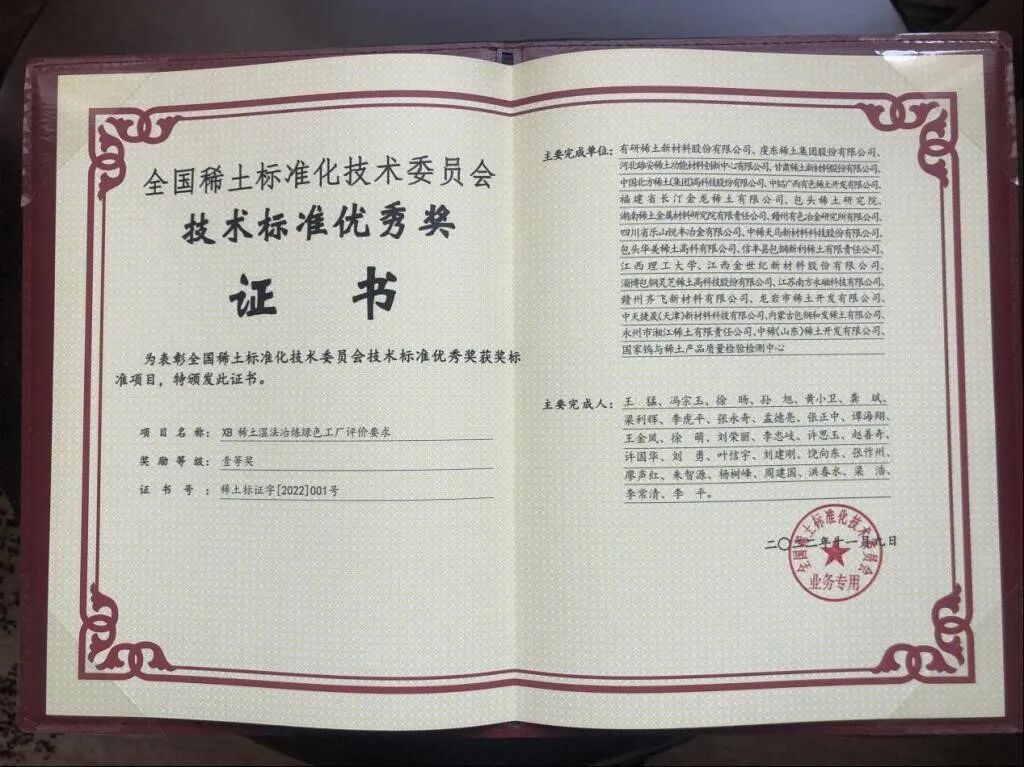 全国稀土标准化技术委员会
技术标准优秀奖
证 书
为表彰全国稀土标准化技术委员会技术标准优秀奖获奖标
准项目，特颁发此证书。
项目名称： XB 稀土湿法冶炼绿色工厂评价要求
奖励等级： 壹等奖
证书号： 稀土标证字[2022]001号
主要完成单位：有研稀土新材料股份有限公司、虔东稀土集团股份有限公司、
河北雄安稀土功能材料创新中心有限公司、甘肃稀土新材料股份有限公司、
中国北方稀土(集团)高科技股份有限公司、中铝广西有色稀土开发有限公司、
福建省长汀金龙稀土有限公司、包头稀土研究院、
湖南稀土金属材料研究院有限责任公司、赣州有色冶金研究所有限公司、
四川省乐山锐丰冶金有限公司、中稀天马新材料科技股份有限公司、
包头华美稀土高科有限公司、信丰县包钢新利稀土有限责任公司、
江西理工大学、江西金世纪新材料股份有限公司、
淄博包钢灵芝稀土高科技股份有限公司、江苏南方永磁科技有限公司、
赣州齐飞新材料有限公司、龙岩市稀土开发有限公司、
中天捷晟(天津)新材料科技有限公司、内蒙古包钢和发稀土有限公司、
永州市湘江稀土有限责任公司、中稀(山东)稀土开发有限公司、
国家钨与稀土产品质量检验检测中心
主要完成人：王 猛、冯宗玉、徐 旸、孙 旭、黄小卫、龚 斌、
梁利辉、李虎平、张永奇、孟德亮、张正中、谭海翔、
王金凤、徐 萌、刘荣丽、李忠岐、许思玉、赵善奇、
许国华、刘 勇、叶信宇、刘建刚、饶向东、张作州、
廖声红、朱智源、杨树峰、周建国、洪春水、梁 浩、
李常清、李 平。
二〇二二年十一月九日
全国稀土标准化技术委员会
业务专用